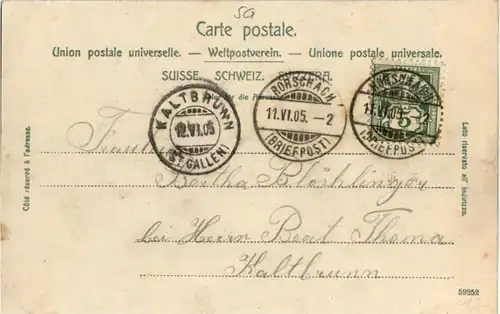 5a
Carte postale.
Union postale universelle. — Weltpostverein. — Unione postale universale.
SUISSE. SCHWEIZ. SVIZZERA.
für die Adresse
KALTBRUNN
12.VI.05
(ST. GALLEN)
RORSCHACH
11.VI.05.–2
(BRIEFPOST)
RORSCHACH
11.VI.05.–2
(BRIEFPOST)
5
Côté réservé à l'adresse.
Lato riservato all' indirizzo.
Bertha Blöchlinger
bei Herrn Beat Thoma
Kaltbrunn
59252